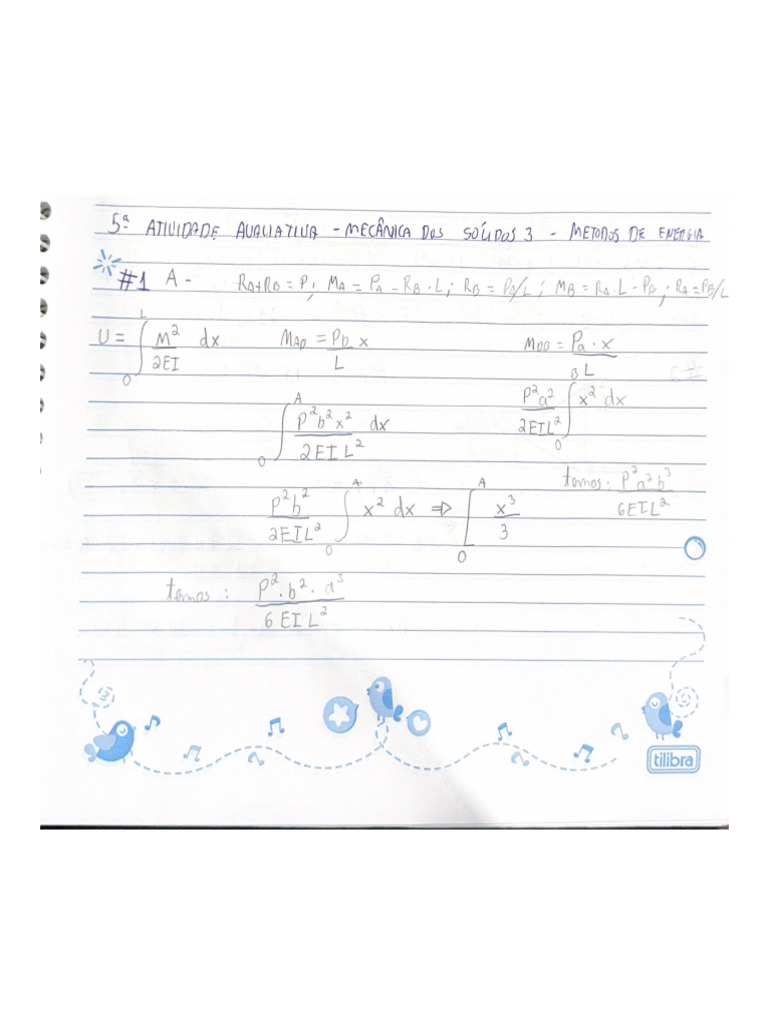 5ª ATIVIDADE AVALIATIVA - MECÂNICA DOS SÓLIDOS 3 - METODOS DE ENERGIA
#1 A - RA+RB = P; MA = Pa - RB · L; RB = Pa/L; MB = RA · L - Pb; RA = Pb/L
U = ∫₀ᴸ M²/2EI dx MAD = Pb/L x MDB = Pa · x/L
∫₀ᴬ P²b²x²/2EIL² dx P²a²/2EIL² ∫₀ᴮ x² dx
P²b²/2EIL² ∫₀ᴬ x² dx ⇒ [₀ᴬ x³/3 temos: P²a²b³/6EIL²
temos: P²·b²·a³/6EIL²
tilibra